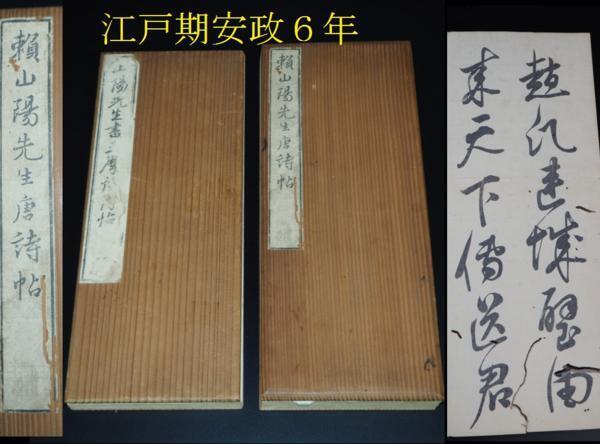 江戸期安政6年
頼山陽先生唐詩帖
山陽先生書
頼山陽先生唐詩帖
趙氏連城璧由
来天下傳送君